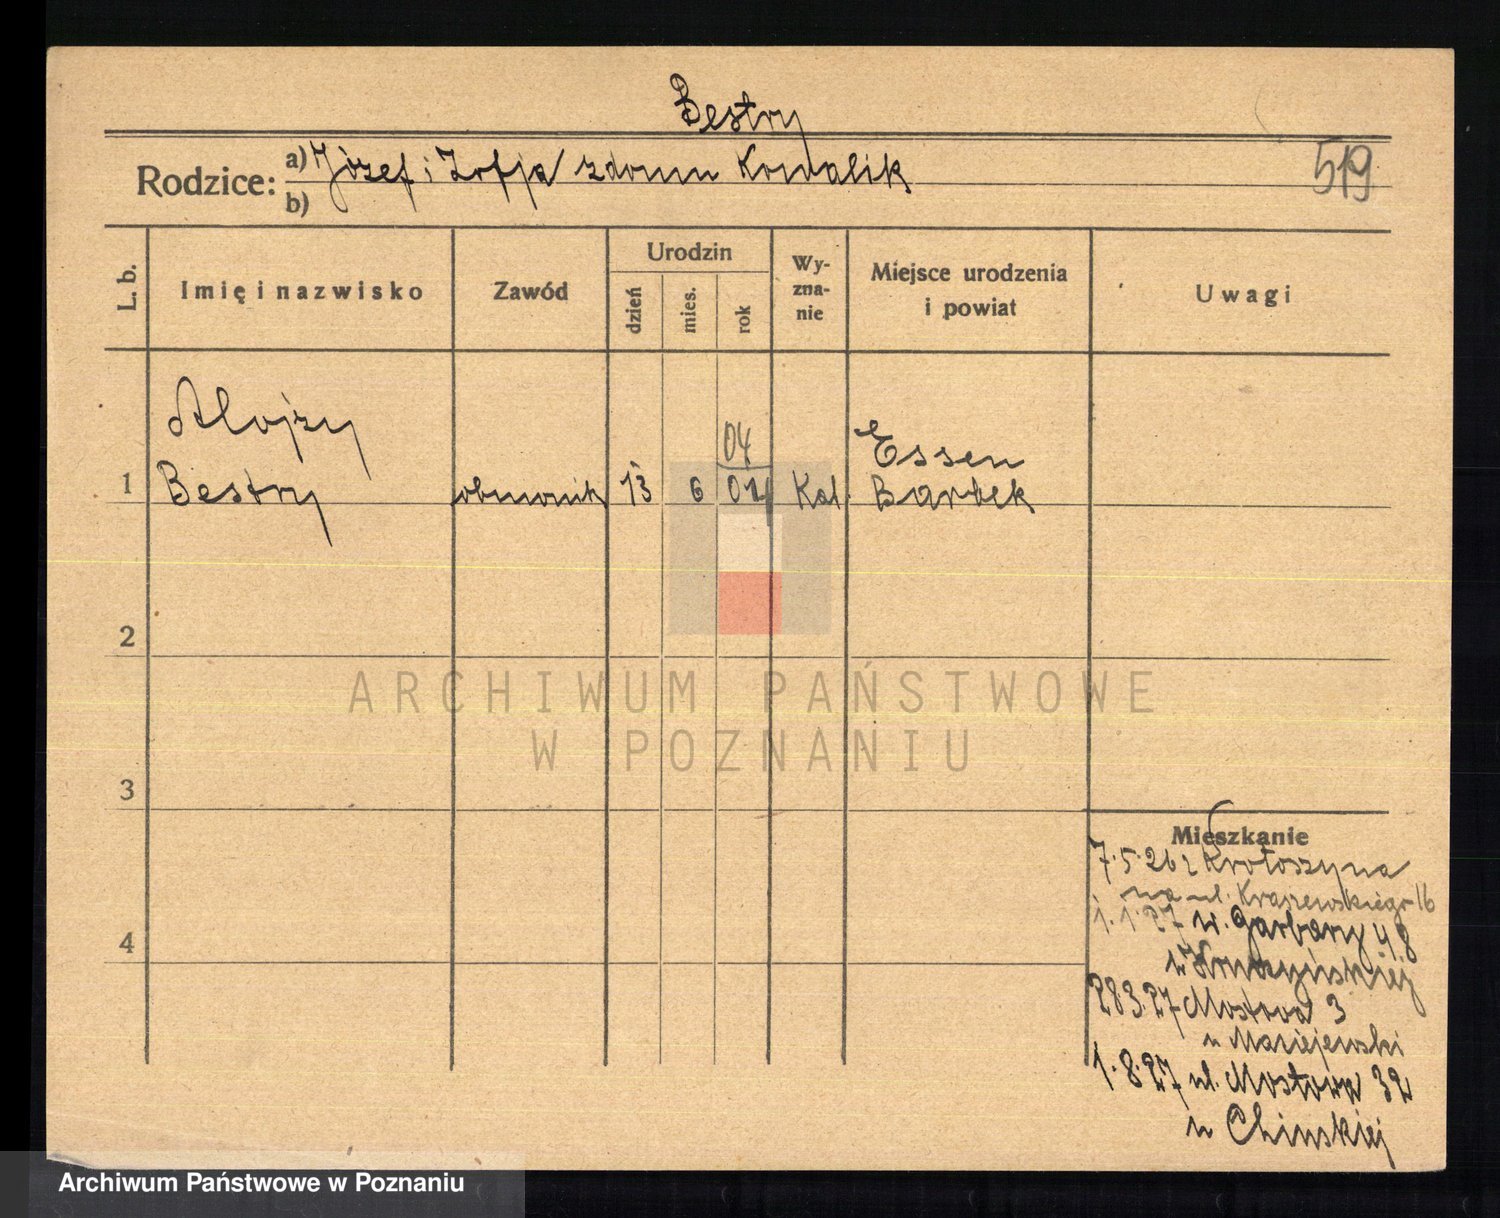 Bestry
Rodzice: a) Józef i Zofja z domu Kowalik
b)
519
L. b.
Imię i nazwisko
Zawód
Urodzin
dzień
mies.
rok
Wy-
zna-
nie
Miejsce urodzenia
i powiat
Uwagi
Alojzy
04
Essen
1 Bestry 13 6 Kat. Borbek
2
3
4
Mieszkanie
7.5.26 z Krotoszyna
na ul. Kraszewskiego 16
1.1.27 w. Garbary 48
u
28.3.27 Mostowa 3
u Maciejewski
1.8.27 ul. Mostowa 32
u Chinskiej
ARCHIWUM PAŃSTWOWE
W POZNANIU
Archiwum Państwowe w Poznaniu